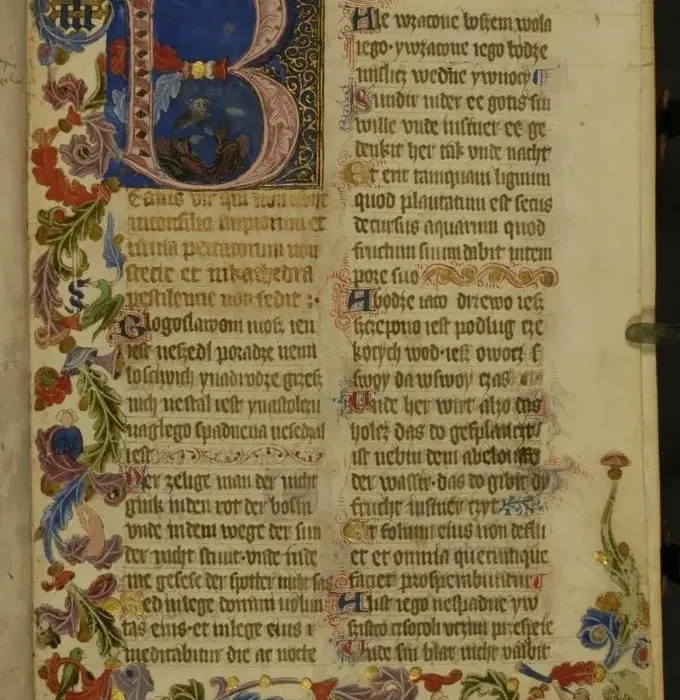 Beatus vir qui non abijt
in consilio impiorum et
in via peccatorum non
stetit et in kathedra
pestilencie non sedit :
Blogoslawoni møsz ien
iest ne szedl po radze nemi
losciwich y na drodze grzesz
nich ne stal iest y na stolczu
naglego spadnena ne sedzal
iest
Der zelige man der nicht
gink in den rot der bosin
vnde in dem wege der sun
der nicht stunt vnde in de
me gesese der spotler nicht sas
Sed in lege domini volun
tas eius et in lege eius
meditabitur die ac nocte
Ale w zacone bozem wola
iego y w zacone iego bødze
mislicz we dne y w nocy
Sundir in der ee gotis sin
wille vnde in siner ee ge
denkit her tak vnde nacht
Et erit tamquam lignum
quod plantatum est secus
decursus aquarum quod
fructum suum dabit in tem
pore suo
A bødze iaco drzewo iesz
szczepiono iest podlug cze
køcych wod iesz owocz
swoy da w swoy czas
Unde her wirt alzo das
holcz das do gesplanczit
ist nebin dem abeloufe
der wassir das do gibit
frucht in siner czyt
Et folium eius non deflu
et et omnia quecumque
faciet prosperabuntur
A list iego ne spadne y w
szistco czsocoli vczini
Unde sin blat nicht